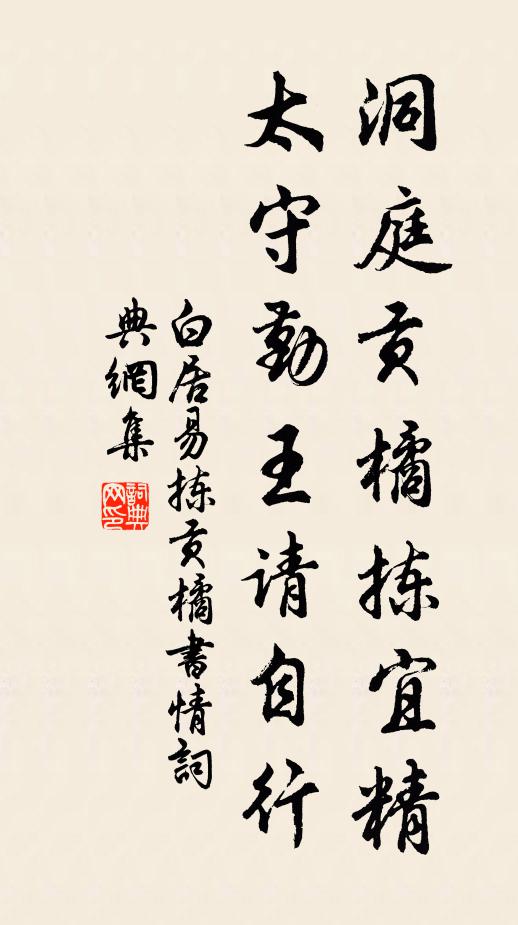 洞庭贡橘拣宜精
太守勤王请自行
白居易拣贡橘書情詞
典網集
詞典
网印